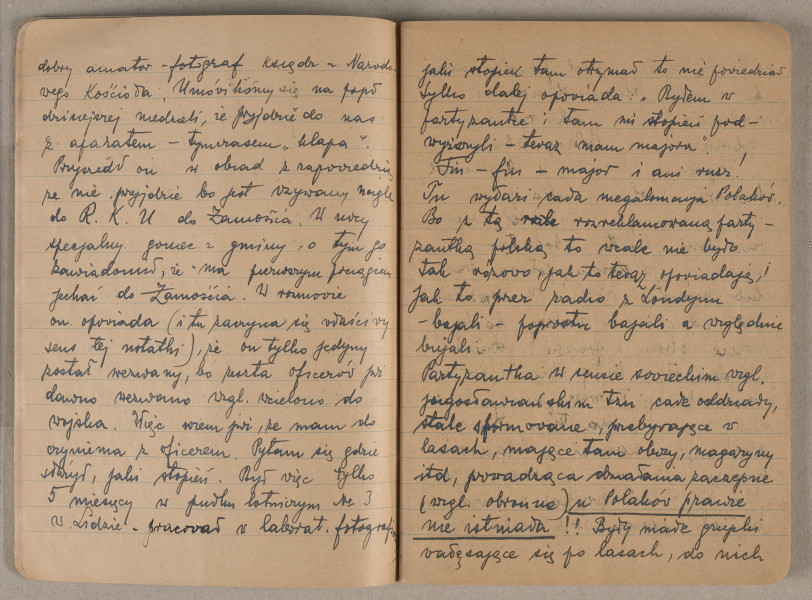 dobry amator-fotograf ksiądz z Narodo-
wego Kościoła. Umówiliśmy się na popoł
dzisiejszej niedzieli, że przyjdzie do nas
z aparatem – tymczasem „klapa".
Przyszedł on w obiad z zapowiedzią
że nie przyjdzie bo jest wzywany nagle
do R.K.U do Zamościa. W nocy
specjalny goniec z gminy o tym go
zawiadomił, że ma pierwszym pociągiem
jechać do Zamościa. W rozmowie
on opowiada (i tu zaczyna się właściwy
sens tej notatki), że on tylko jedyny
został wezwany, bo reszta oficerów już
dawno wezwano wzgl. wcielono do
wojska. Więc wiem już, że mam do
czynienia z oficerem. Pytam się gdzie
służył, jaki stopień. Był więc tylko
5 miesięcy w pułku lotniczym Nr 3
w Lidzie – pracował w laborat. fotografi
jaki stopień tam otrzymał to nie powiedział
tylko dalej opowiada: „Byłem w
partyzantce i tam mi stopień pod-
wyższyli – teraz mam majora"!
Fiu – fiu – major i ani rusz!
Tu wyłazi cała megalomania Polaków.
Bo z tą rozreklamowaną party-
zantką polską to wcale nie było
tak różowo, jak to teraz opowiadają!
Jak to przez radio z Londynu
– bajali – poprostu bajali a względnie
bujali.
Partyzantka w sensie sowieckim wzgl.
jugosławiańskim tzn całe oddziały,
stale sformowane, przebywające w
lasach, mające tam obozy, magazyny
itd, prowadząca działania zaczepne
(wzgl. obronne) u Polaków prawie
nie istniała!! Były małe grupki
wałęsające się po lasach, do nich